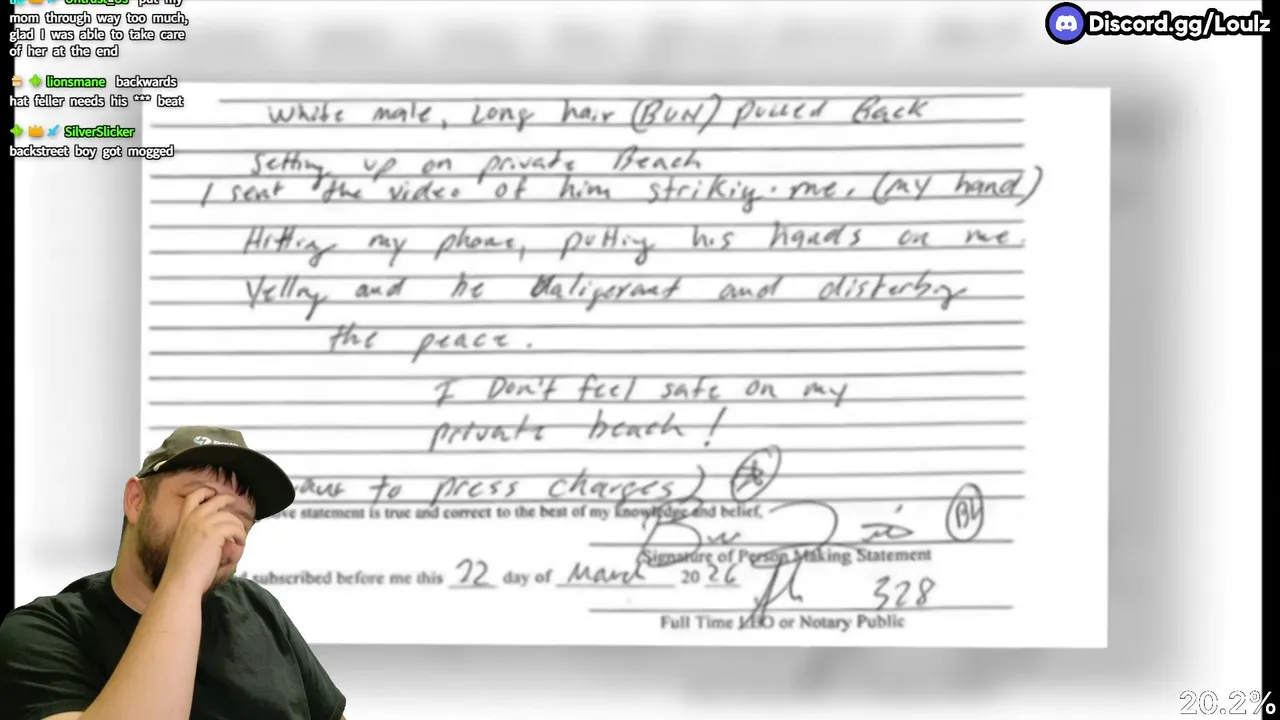 mom through way too much,
glad I was able to take care
of her at the end
lionsmane backwards
hat feller needs his *** beat
SilverSlicker
backstreet boy got mogged
Discord.gg/Loulz
White male, Long hair (BUN) pulled Back
Setting up on private Beach
I sent the video of him strikiy. me. (my hand)
Hitting my phone, putting his hands on me.
Yellny and be Baligerant and disterbing
the peace.
I Don't feel safe on my
private beach!
to press charges)
statement is true and correct to the best of my knowledge and belief,
BL
Signature of Person Making Statement
subscribed before me this 22 day of March 20 26
328
Full Time LEO or Notary Public
20.2%